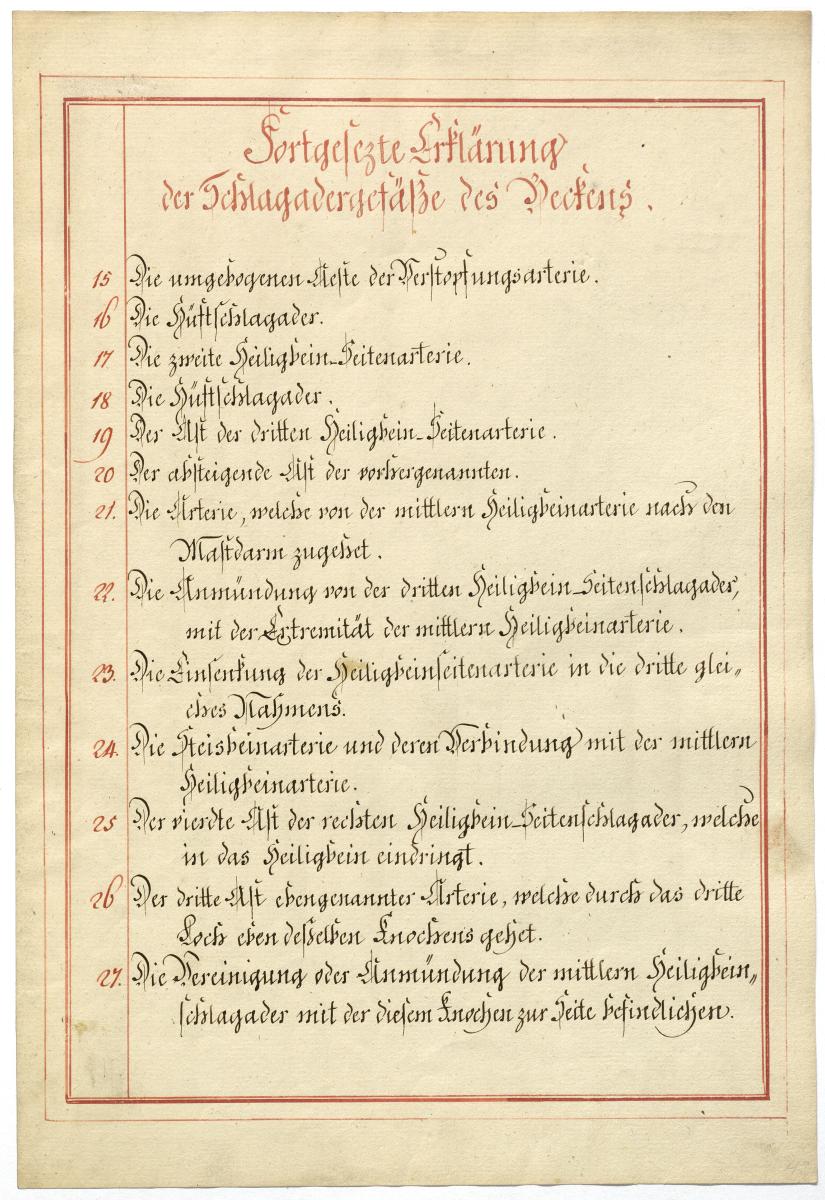 Fortgesezte Erklärung
der Schlagadergefäße des Beckens.
15 Die umgebogenen Aeste der Verstopfungsarterie.
16 Die Hüftschlagader.
17 Die zweite Heiligbein-Seitenarterie.
18 Die Hüftschlagader.
19 Der Ast der dritten Heiligbein-Seitenarterie.
20 Der absteigende Ast der vorhergenannten.
21. Die Arterie, welche von der mittlern Heiligbeinarterie nach den
Mastdarm zugehet.
22. Die Anmündung von der dritten Heiligbein-Seitenschlagader,
mit der Extremität der mittlern Heiligbeinarterie.
23. Die Einsenkung der Heiligbeinseitenarterie in die dritte glei„
ches Nahmens.
24. Die Steisbeinarterie und deren Verbindung mit der mittlern
Heiligbeinarterie.
25 Der vierdte Ast der rechten Heiligbein-Seitenschlagader, welche
in das Heiligbein eindringt.
26 Der dritte Ast ebengenannter Arterie, welche durch das dritte
Loch eben desselben Knochens gehet.
27. Die Vereinigung oder Anmündung der mittlern Heiligbein„
schlagader mit der diesem Knochen zur Seite befindlichen.